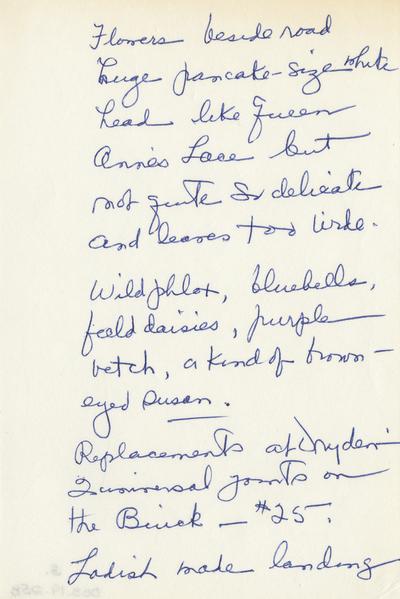 Flowers beside road
huge pancake-size white
head like Queen
Anne's Lace but
not quite so delicate
and leaves too wide.
Wild phlox, bluebells,
field daisies, purple
vetch, a kind of brown-
eyed Susan.
Replacements at Dryden
2 universal joints on
the Buick — $25.
Ladish made landing